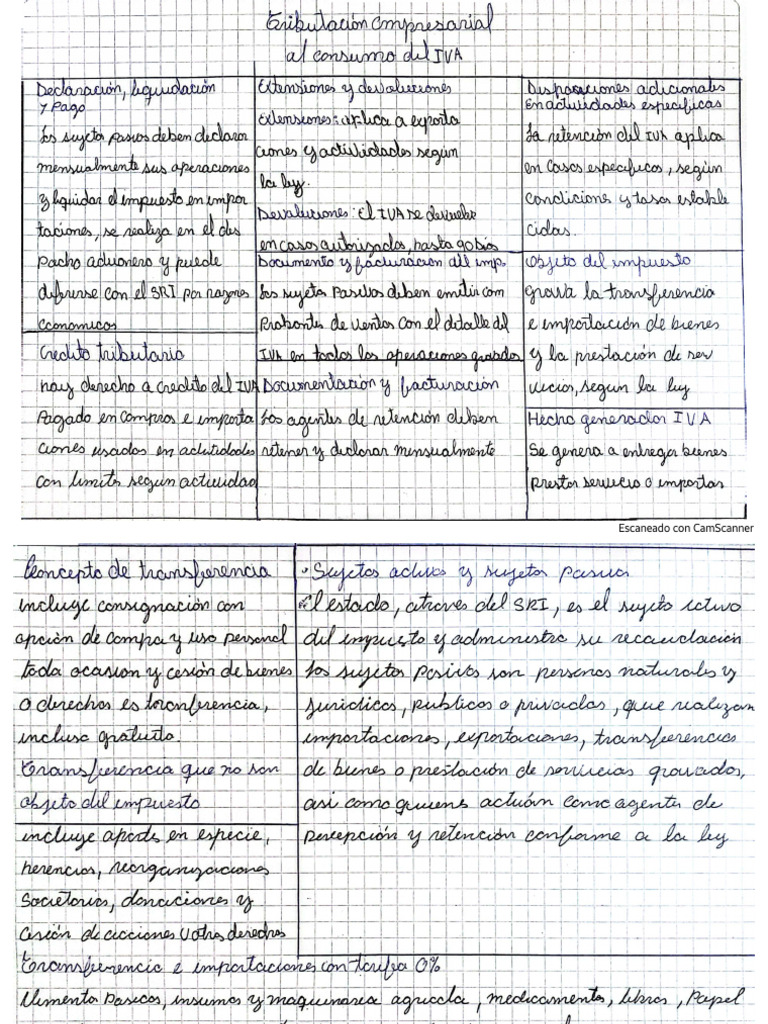 Tributación Empresarial
al consumo del IVA
Declaración, liquidación
y Pago
Los sujetos pasivos deben declarar
mensualmente sus operaciones
y liquidar el impuesto en impor
taciones, se realiza en el des
pacho aduanero y puede
diferirse con el SRI por razones
economicos
Credito tributario
hay derecho a credito del IVA
Pagado en compras e importa
ciones usados en actividades
con limites según actividad
Extensiones y devoluciones
Extensiones: aplica a exporta
ciones y actividades según
la ley.
Devoluciones: El IVA se devuelve
en casos autorizados, hasta 90 días
Documento y facturación del imp.
Los sujetos Pasivos deben emitir com
Probantes de ventas con el detalle del
IVA en todas las operaciones gravadas
Documentación y facturación
Los agentes de retención deben
retener y declarar mensualmente
Disposiciones adicionales
En actividades especificas
La retención del IVA aplica
en casos especificos, según
condiciones y tasas estable
cidas.
Objeto del impuesto
grava la transferencia
e importación de bienes
y la prestación de ser
vicios, según la ley
Hecho generador IVA
Se genera a entregar bienes
prestar servicio o importar
Escaneado con CamScanner
Concepto de transferencia
incluye consignación con
opción de compra y uso personal
toda ocasion y cesión de bienes
o derechos es transferencia,
incluso gratuito.
Transferencia que no son
objeto del impuesto
incluye aportes en especie,
herencias, reorganizaciones
Societarias, donaciones y
Cesión de acciones u otros derechos
• Sujetos activos y sujetos pasivos
El estado, atraves del SRI, es el sujeto activo
del impuesto y administra su recaudación
Los sujetos Pasivos son personas naturales y
juridicas, publicas o privadas, que realizan
importaciones, exportaciones, transferencias
de bienes o prestación de servicios gravados,
asi como quienes actuán como agentes de
percepción y retención conforme a la ley
Transferencia e importaciones con tarifa 0%
Alimentos basicos, insumos y maquinaria agricola, medicamentos, libros, Papel